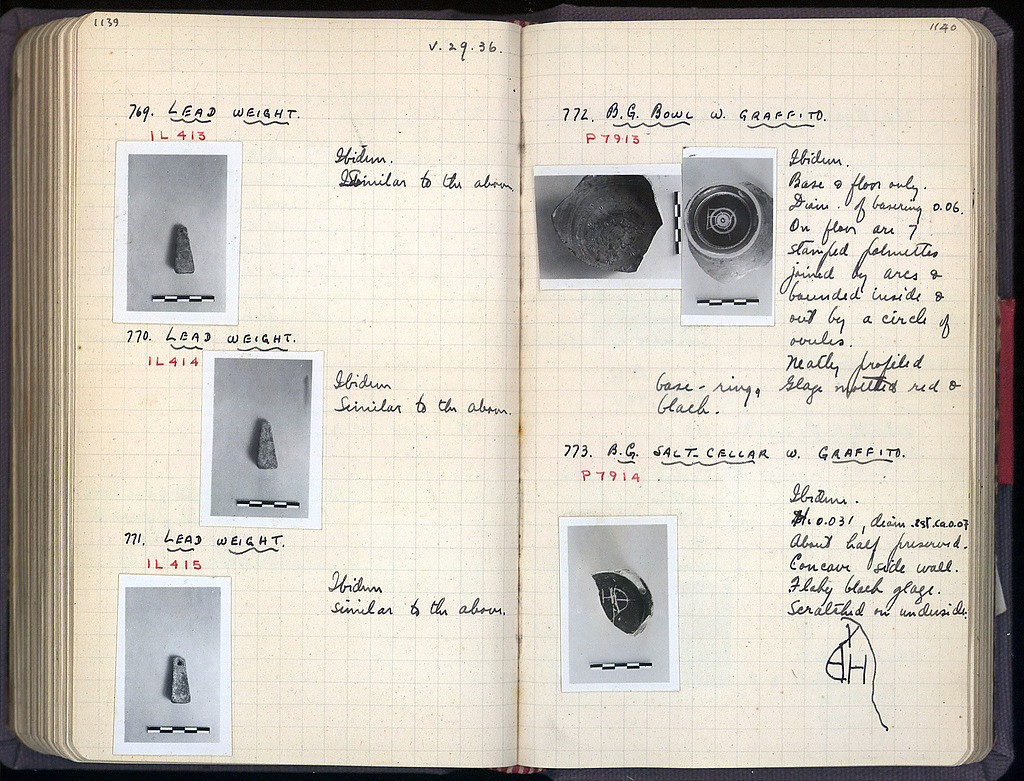 1139
V. 29. 36.
769. LEAD WEIGHT.
IL 413
Ibidem.
Similar to the above.
770. LEAD WEIGHT.
IL 414
Ibidem
Similar to the above.
771. LEAD WEIGHT.
IL 415
Ibidem
Similar to the above.
1140
772. B.G. BOWL W. GRAFFITO.
P 7913
Ibidem.
Base & floor only.
Diam. of basering 0.06.
On floor are 7
stamped palmettes
joined by arcs &
bounded inside &
out by a circle of
ovules.
Neatly profiled
base-ring, Glaze mottled red &
black.
773. B.G. SALT-CELLAR W. GRAFFITO.
P 7914
Ibidem.
H. 0.031, diam. est. ca. 0.07
About half preserved.
Concave side wall.
Flaky black glaze.
Scratched on underside: